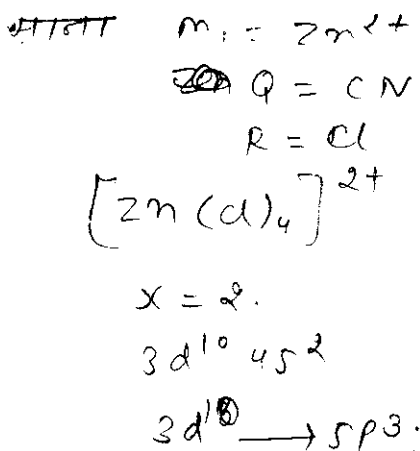 माना M₁ = Zn²⁺
Q = CN
R = Cl
[Zn(Cl)₄]²⁺
x = 2.
3d¹⁰ 4s²
3d¹⁰ → sp3.